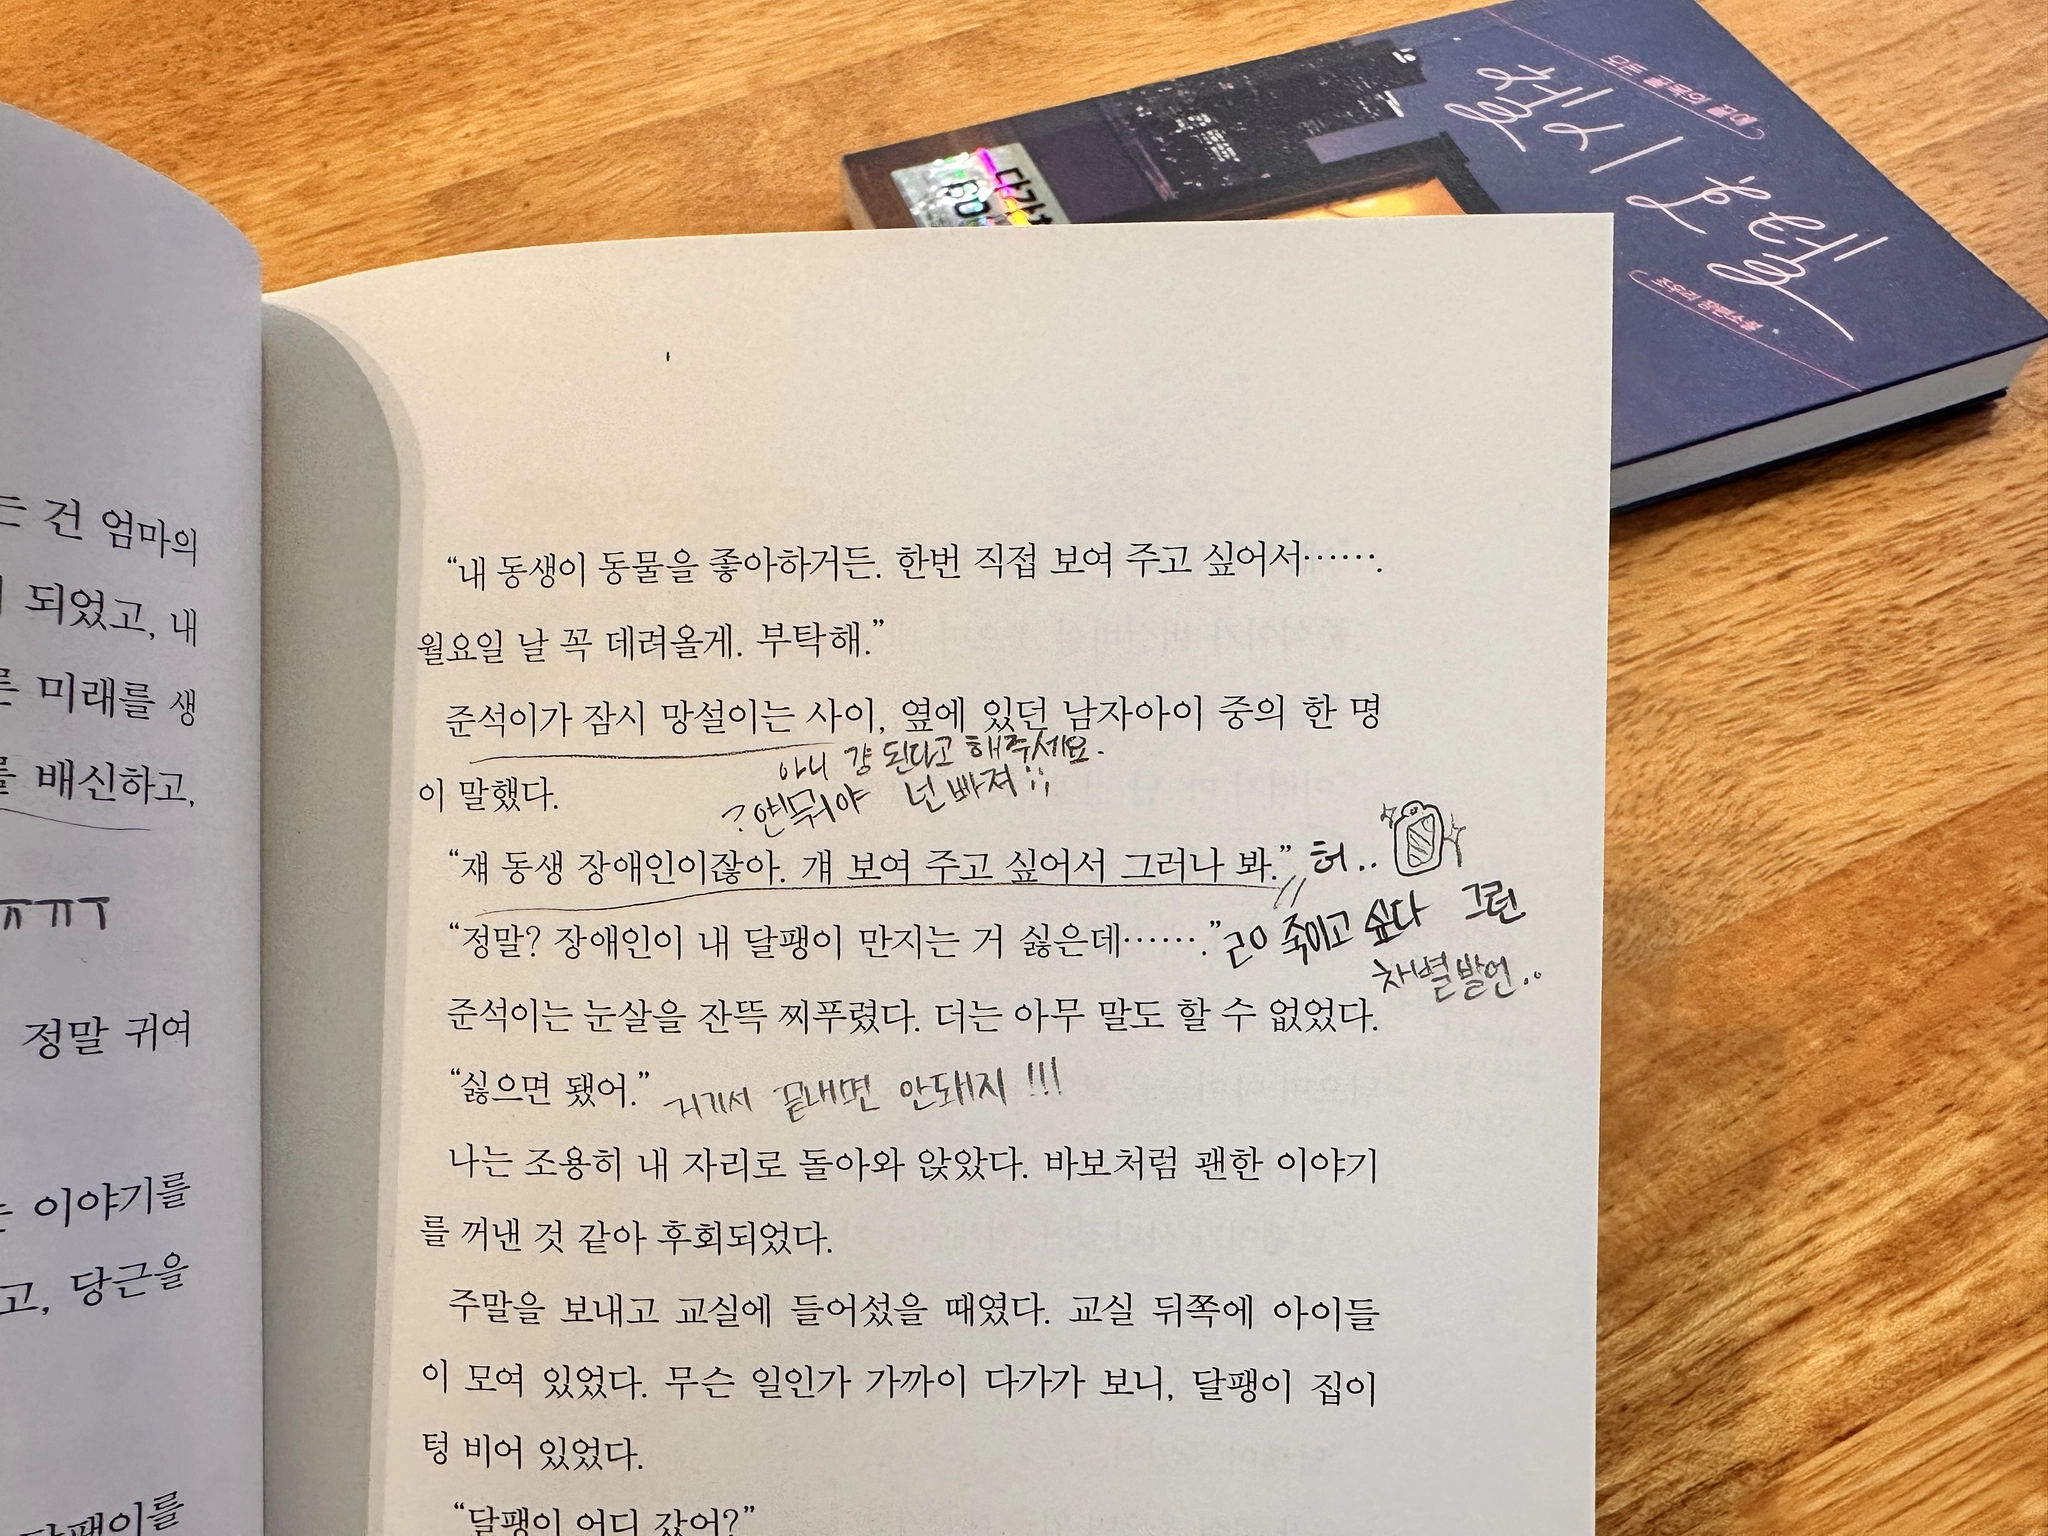 모든 골목의 끝에
첼시 호텔
조우리 장편소설
다
BO
는 건 엄마의
되었고, 내
른 미래를 생
를 배신하고,
ㅠㅠㅜ
정말 귀여
는 이야기를
고, 당근을
달팽이를
“내 동생이 동물을 좋아하거든. 한번 직접 보여 주고 싶어서…….
월요일 날 꼭 데려올게. 부탁해.”
준석이가 잠시 망설이는 사이, 옆에 있던 남자아이 중의 한 명
아니 걍 된다고 해주세요.
이 말했다.
?얜뭐야 넌 빠져;;
“쟤 동생 장애인이잖아. 걔 보여 주고 싶어서 그러나 봐.” 허..
“정말? 장애인이 내 달팽이 만지는 거 싫은데…….” 죽이고 싶다 그런
차별발언..
준석이는 눈살을 잔뜩 찌푸렸다. 더는 아무 말도 할 수 없었다.
“싫으면 됐어.” 거기서 끝내면 안돼지 !!!
나는 조용히 내 자리로 돌아와 앉았다. 바보처럼 괜한 이야기
를 꺼낸 것 같아 후회되었다.
주말을 보내고 교실에 들어섰을 때였다. 교실 뒤쪽에 아이들
이 모여 있었다. 무슨 일인가 가까이 다가가 보니, 달팽이 집이
텅 비어 있었다.
“달팽이 어디 갔어?”